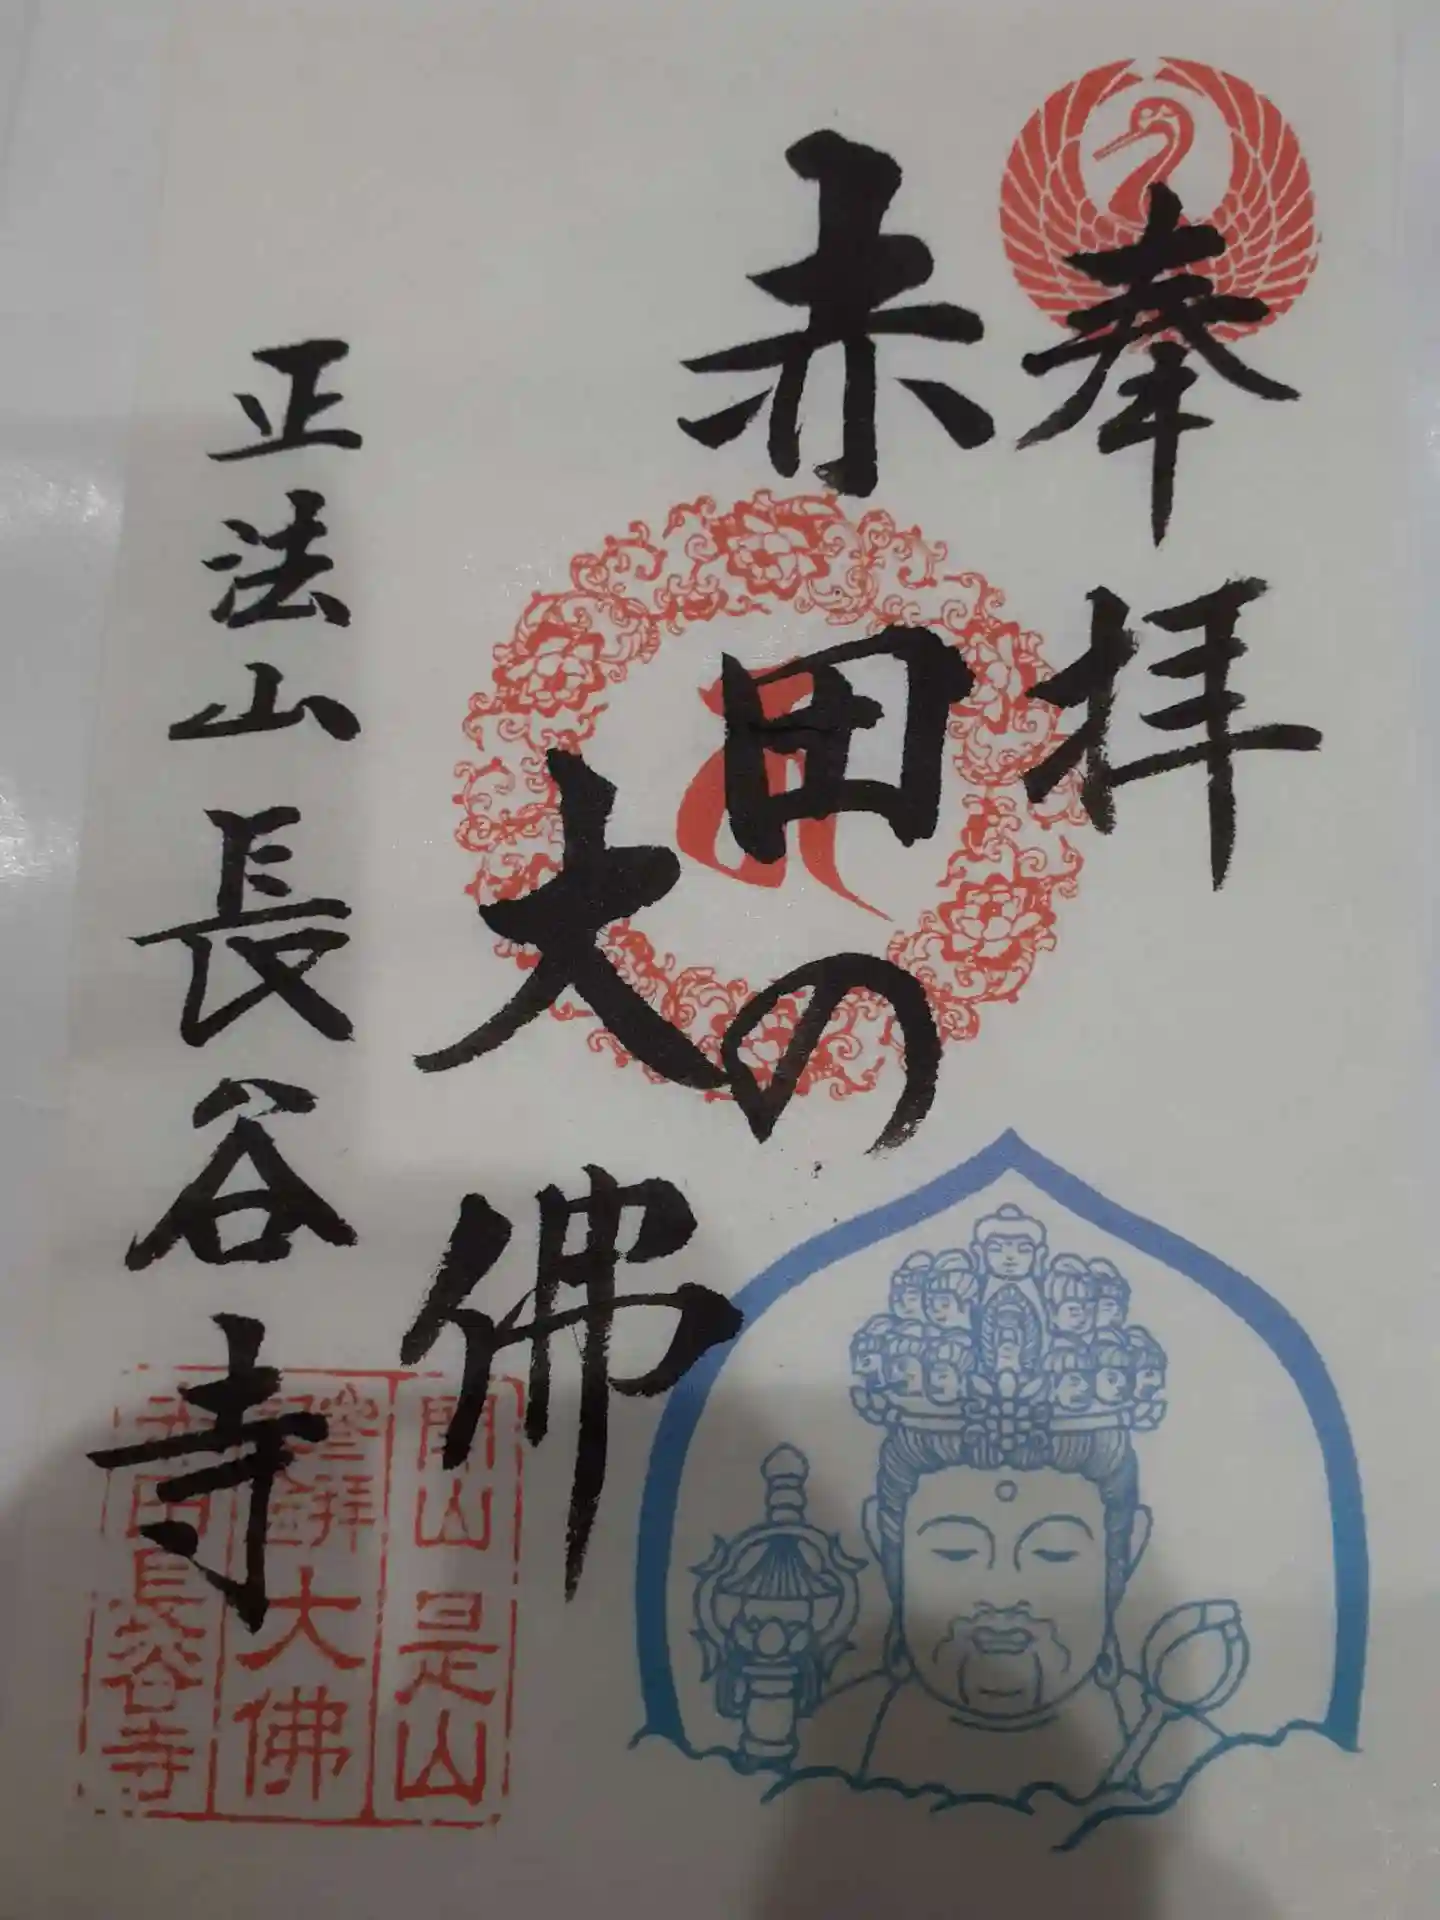 奉拝
赤田の
大佛
正法山長谷寺
開山是山
大佛
田長谷寺